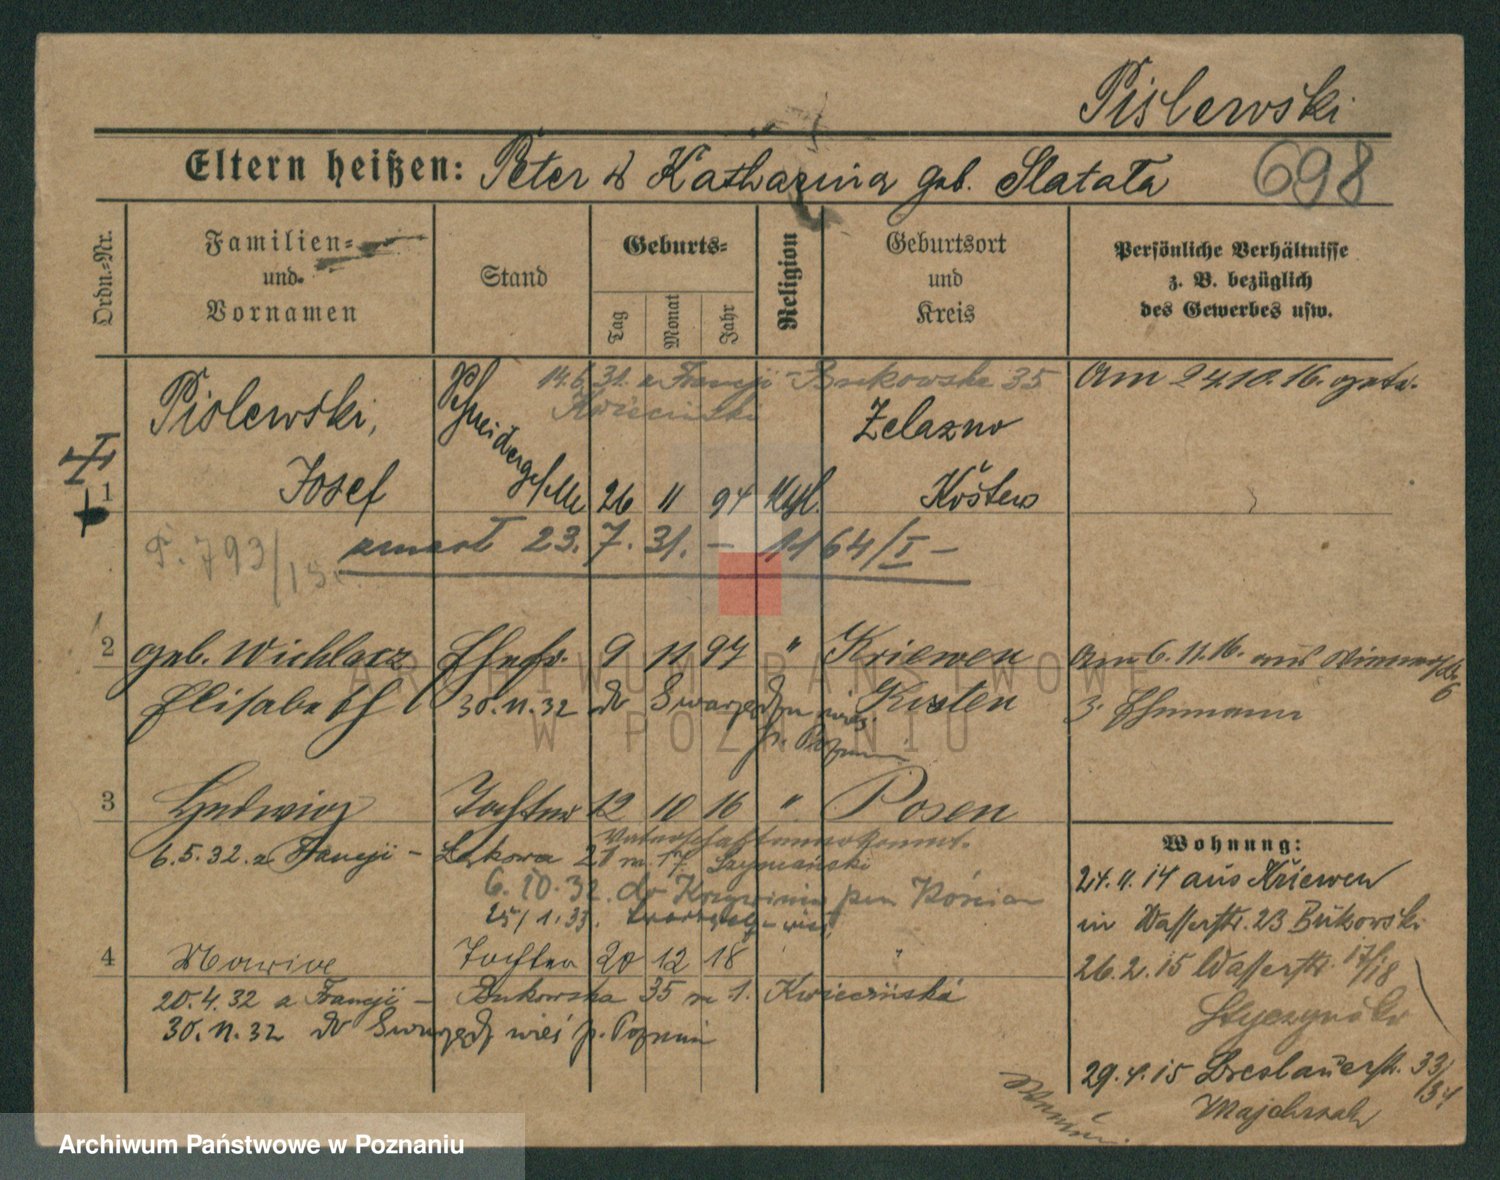 Pislewski
Eltern heißen: Peter & Katharina geb. Slatata
698
Ordn.=Nr.
Familien=
und
Vornamen
Stand
Geburts=
Tag
Monat
Jahr
Religion
Geburtsort
und
Kreis
Persönliche Verhältnisse
z. B. bezüglich
des Gewerbes usw.
14.6.31. z Francji - Bukowska 35
Kwieciński
Am 24.10.16.
Pislewski,
Josef
Schneidergeselle
1
26 11 94 Kath.
Żelazno
Kosten
T. 793/13
zmarł 23. 7. 31. - 1164/I -
2
geb. Wichlacz
Elisabeth
Ehefr.
9 11 97 "
Kriewen
Kosten
Am 6.11.16. aus
6
z. Ehemann
30.11.32 do Swarzędz wieś
p. Poznań
3
Hedwig
Tochter
12 10 16 "
Posen
6.5.32. z Francji - Łąkowa 21 m. 17 Szymański
6.10.32. do Krzywinia pow Kościan
25/1.33. Swarzędz - wieś
4
Marie
Tochter
20 12 18 "
20.4.32 z Francji - Bukowska 35 m 1. Kwiecińska
30.11.32 do Swarzędz wieś p. Poznań
Wohnung:
24.11.14 aus Kriewen
in Wasserstr. 23 Bukowski
26.2.15 Wasserstr. 17/18
29.4.15 Breslauerstr. 33/34
Majchrzak
ARCHIWUM PAŃSTWOWE
W POZNANIU
Archiwum Państwowe w Poznaniu